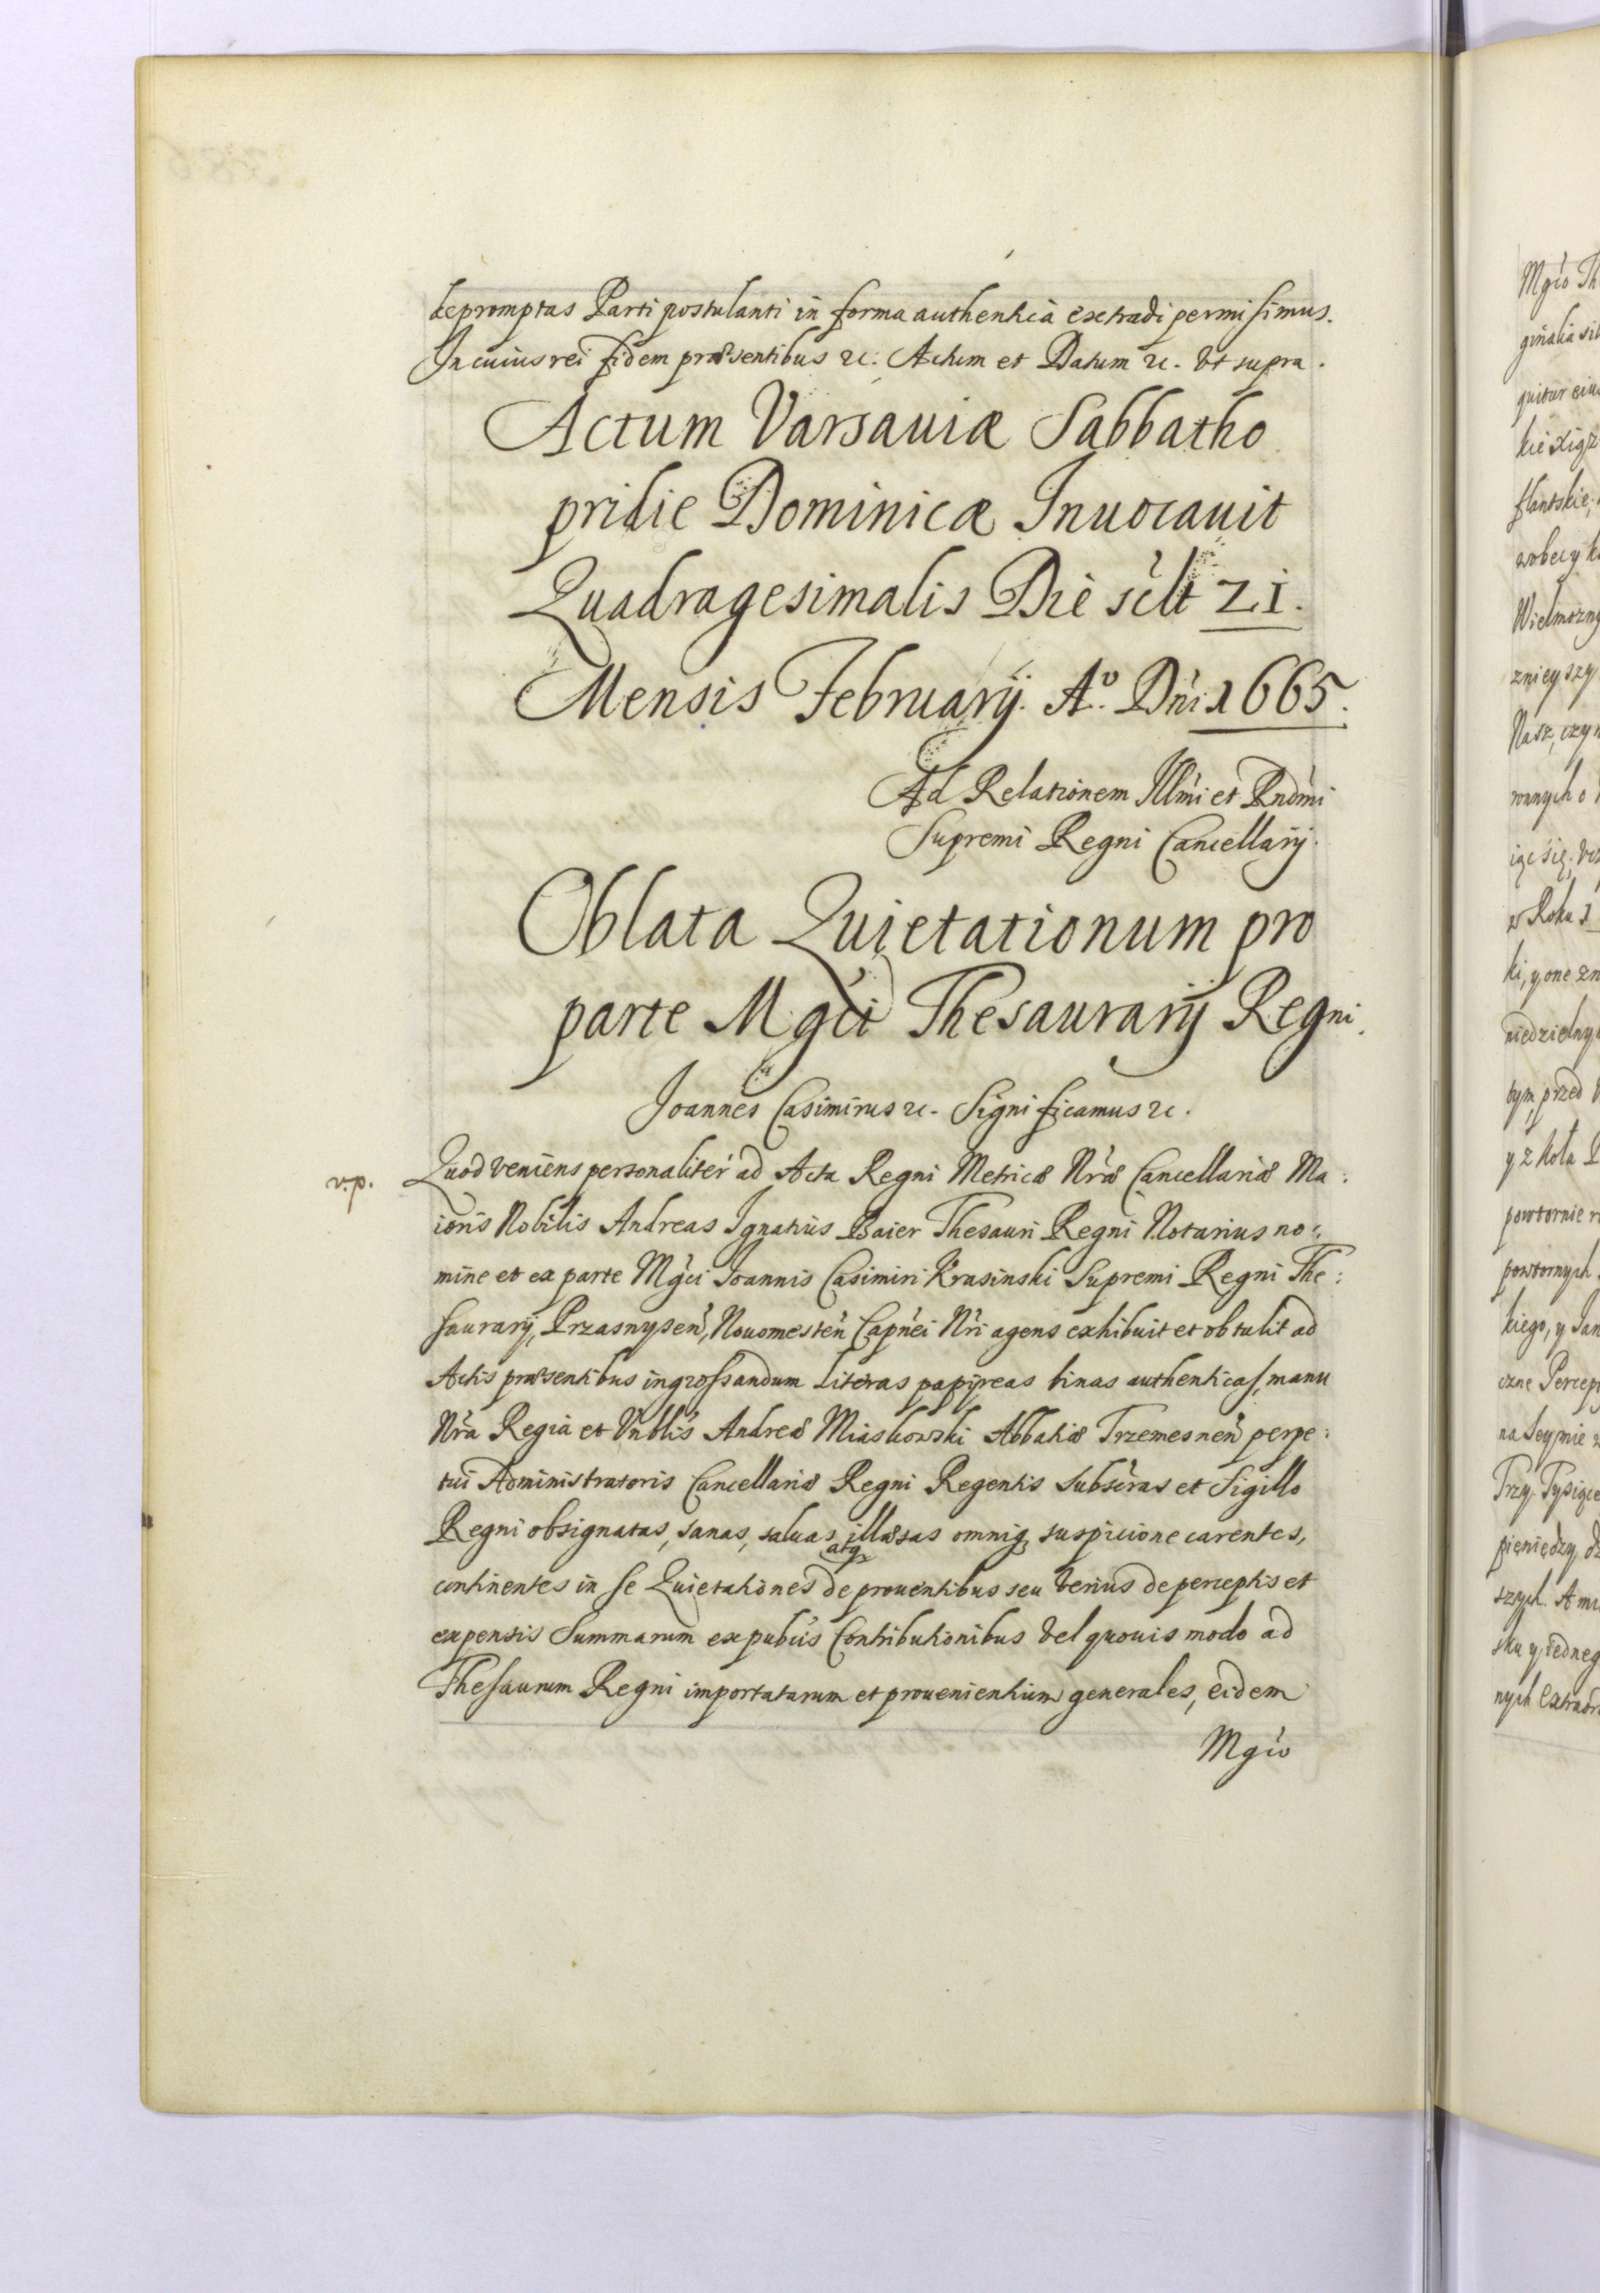 depromptas Parti postulanti in forma authentica extradi permisimus.
In cuius rei fidem præsentibus &c: Actum et Datum &c. Vt supra.
Actum Varsauiæ Sabbatho
pridie Dominicæ Inuocauit
Quadragesimalis Die sclt 21.
Mensis February. Ao. Dni 1665.
Ad Relationem Illmi et Rndmi
Supremi Regni Cancellarij.
Oblata Quietationum pro
parte Mgci Thesaurarij Regni.
Joannes Casimirus &c. Significamus &c.
v.p.
Quod veniens personaliter ad Acta Regni Metricæ Nræ Cancellariæ Ma:
ioris Nobilis Andreas Ignatius Baier Thesauri Regni Notarius no:
mine et ex parte Mgci Joannis Casimiri Krasinski Supremi Regni The:
saurarij, Przasnysen, Nouomesten Capnei Nri agens exhibuit et obtulit ad
Actis præsentibus ingrossandum literas papijreas binas authenticas, manu
Nra Regia et Vnblis Andreæ Miaskowski Abbatiæ Trzemesnen perpe:
tui Administratoris Cancellariæ Regni Regentis Subscras et Sigillo
Regni obsignatas, sanas, saluas, illæsas omniq suspicione carentes,
atq
continentes in se Quietationes de prouentibus seu verius de perceptis et
expensis Summarum ex publis Contributionibus vel quouis modo ad
Thesaurum Regni importatarum et prouenientium generales, eidem
Mgco
Mgco Th
ginalia si
quitur eiu
wobec y k
Wielmozny
zniey szy
Nasz, czyn
w Roku 1
ki, y one zn
niedzielny
tym, przed
y z Kola
powtornie r
powtornych
kiego, y Jan
czne Percep
na Seymie
Trzy Tysiące
pieniędzy,
szych. A
sku y, iedneg
nych Extraor